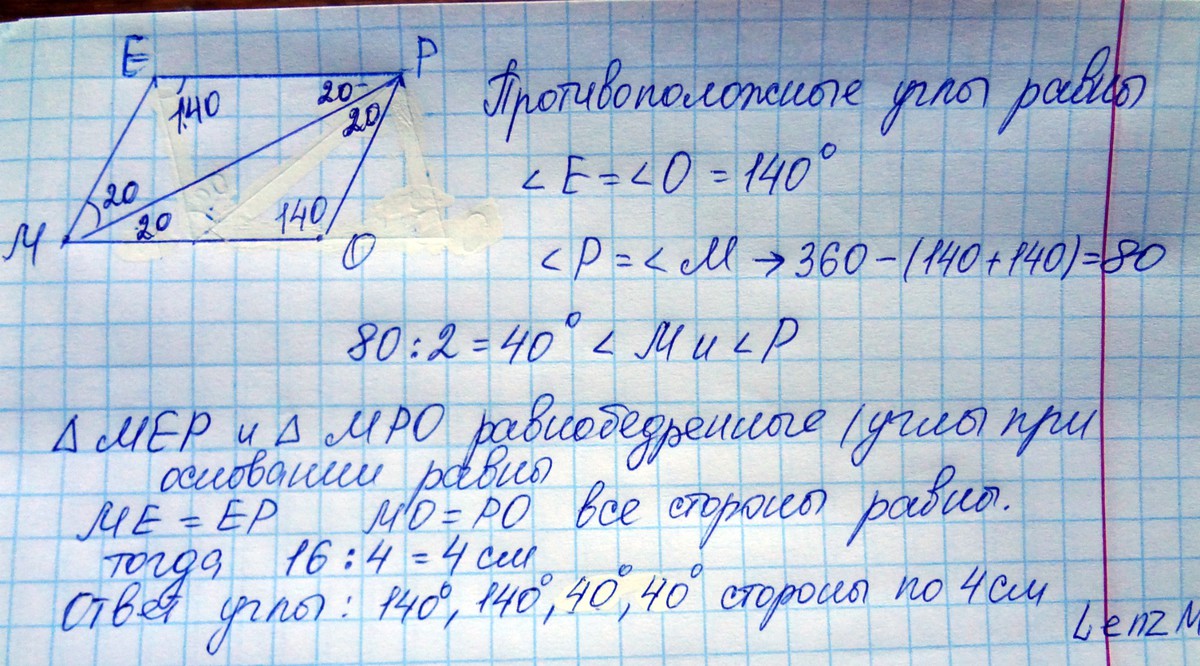 E P
140 20 20
20
20 140
M O
Противоположные углы равны
< E = < O = 140°
< P = < M → 360 - (140 + 140) = 80
80 : 2 = 40° < M и < P
Δ MEP и Δ MPO равнобедренные (углы при
основании равны
ME = EP MO = PO все стороны равны.
тогда 16 : 4 = 4 см
Ответ углы: 140°, 140°, 40°, 40° стороны по 4 см
LenzM